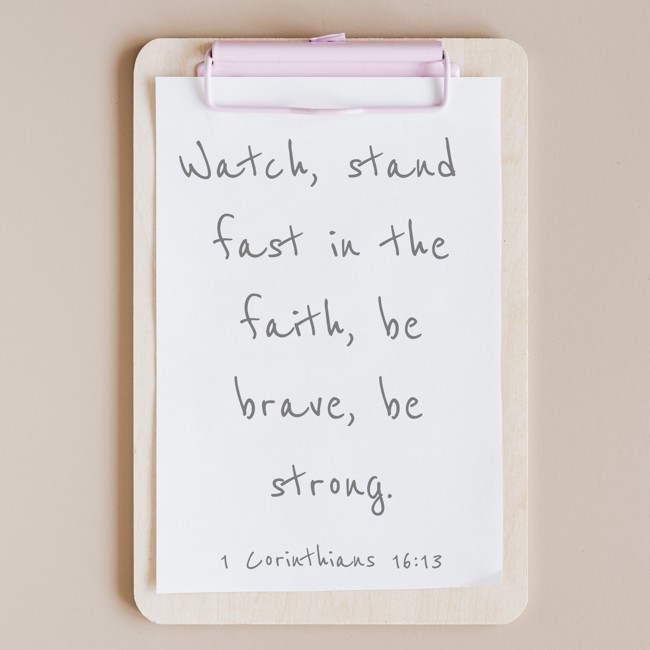 Watch, stand
fast in the
faith, be
brave, be
strong.
1 Corinthians 16:13